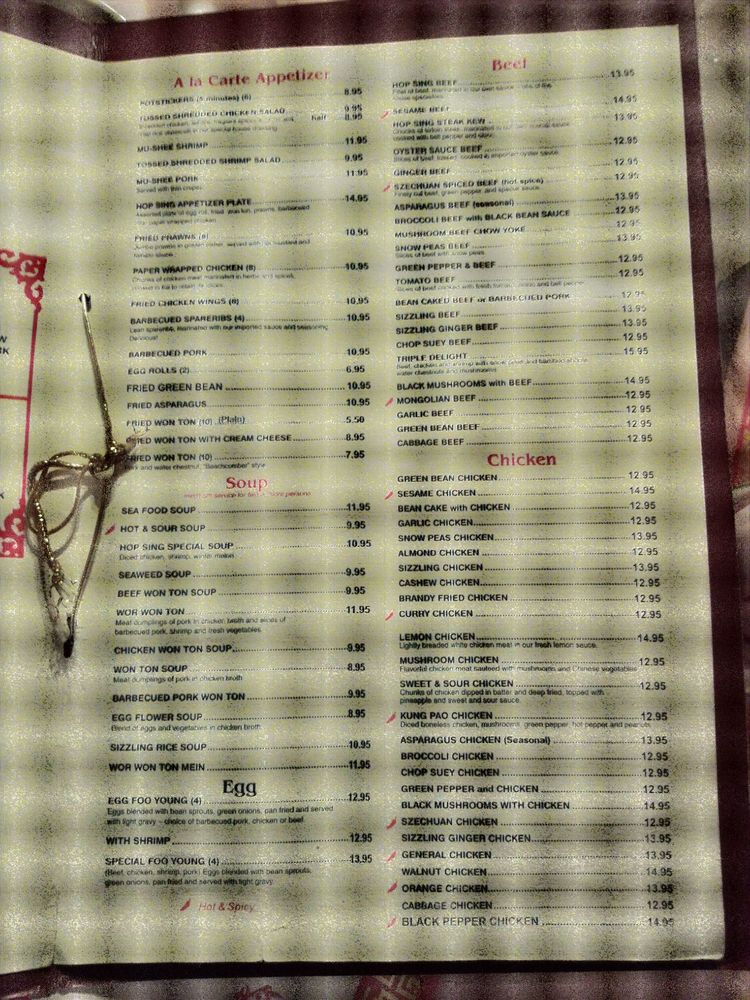 A la Carte Appetizer
POTSTICKERS (5 minutes) (6) 8.95
TOSSED SHREDDED CHICKEN SALAD 9.95
Half 8.95
MU-SHEE SHRIMP 11.95
TOSSED SHREDDED SHRIMP SALAD 9.95
MU-SHEE PORK 11.95
Served with thin crepes
HOP SING APPETIZER PLATE 14.95
FRIED PRAWNS (8) 10.95
PAPER WRAPPED CHICKEN (8) 10.95
Chunks of chicken meat marinated in herbs and spices,
FRIED CHICKEN WINGS (8) 10.95
BARBECUED SPARERIBS (4) 10.95
Lean spareribs, marinated with our imported sauce and seasoning
Delicious!
BARBECUED PORK 10.95
EGG ROLLS (2) 6.95
FRIED GREEN BEAN 10.95
FRIED ASPARAGUS 10.95
FRIED WON TON (10) (Plain) 5.50
FRIED WON TON WITH CREAM CHEESE 8.95
FRIED WON TON (10) 7.95
Pork and water chestnut, "Beachcomber" style
Soup
SEA FOOD SOUP 11.95
HOT & SOUR SOUP 9.95
HOP SING SPECIAL SOUP 10.95
Diced chicken, shrimp, winter melon
SEAWEED SOUP 9.95
BEEF WON TON SOUP 9.95
WOR WON TON 11.95
Meat dumplings of pork in chicken broth and slices of
barbecued pork, shrimp and fresh vegetables.
CHICKEN WON TON SOUP 9.95
WON TON SOUP 8.95
Meat dumplings of pork in chicken broth
BARBECUED PORK WON TON 9.95
EGG FLOWER SOUP 8.95
Blend of eggs and vegetables in chicken broth
SIZZLING RICE SOUP 10.95
WOR WON TON MEIN 11.95
Egg
EGG FOO YOUNG (4) 12.95
Eggs blended with bean sprouts, green onions, pan fried and served
with light gravy - choice of barbecued pork, chicken or beef.
WITH SHRIMP 12.95
SPECIAL FOO YOUNG (4) 13.95
(Beef, chicken, shrimp, pork) Eggs blended with bean sprouts,
green onions, pan fried and served with light gravy.
Hot & Spicy
Beef
HOP SING BEEF 13.95
SESAME BEEF 14.95
HOP SING STEAK KEW 13.95
OYSTER SAUCE BEEF 12.95
GINGER BEEF 12.95
SZECHUAN SPICED BEEF (hot spice) 12.95
ASPARAGUS BEEF (seasonal) 13.95
BROCCOLI BEEF with BLACK BEAN SAUCE 12.95
MUSHROOM BEEF CHOW YOKE 12.95
SNOW PEAS BEEF 13.95
Slices of beef with snow peas
GREEN PEPPER & BEEF 12.95
TOMATO BEEF 12.95
BEAN CAKED BEEF or BARBECUED PORK 12.95
SIZZLING BEEF 13.95
SIZZLING GINGER BEEF 13.95
CHOP SUEY BEEF 12.95
TRIPLE DELIGHT 15.95
water chestnuts and mushrooms
BLACK MUSHROOMS with BEEF 14.95
MONGOLIAN BEEF 12.95
GARLIC BEEF 12.95
GREEN BEAN BEEF 12.95
CABBAGE BEEF 12.95
Chicken
GREEN BEAN CHICKEN 12.95
SESAME CHICKEN 14.95
BEAN CAKE with CHICKEN 12.95
GARLIC CHICKEN 12.95
SNOW PEAS CHICKEN 13.95
ALMOND CHICKEN 12.95
SIZZLING CHICKEN 13.95
CASHEW CHICKEN 12.95
BRANDY FRIED CHICKEN 12.95
CURRY CHICKEN 12.95
LEMON CHICKEN 14.95
Lightly breaded white chicken meat in our fresh lemon sauce.
MUSHROOM CHICKEN 12.95
Flavorful chicken meat sauteed with mushrooms and Chinese vegetables
SWEET & SOUR CHICKEN 12.95
Chunks of chicken dipped in batter and deep fried, topped with
pineapple and sweet and sour sauce.
KUNG PAO CHICKEN 12.95
Diced boneless chicken, mushrooms, green pepper, hot pepper and peanuts
ASPARAGUS CHICKEN (Seasonal) 13.95
BROCCOLI CHICKEN 12.95
CHOP SUEY CHICKEN 12.95
GREEN PEPPER and CHICKEN 12.95
BLACK MUSHROOMS WITH CHICKEN 14.95
SZECHUAN CHICKEN 12.95
SIZZLING GINGER CHICKEN 13.95
GENERAL CHICKEN 13.95
WALNUT CHICKEN 14.95
ORANGE CHICKEN 13.95
CABBAGE CHICKEN 12.95
BLACK PEPPER CHICKEN 14.95